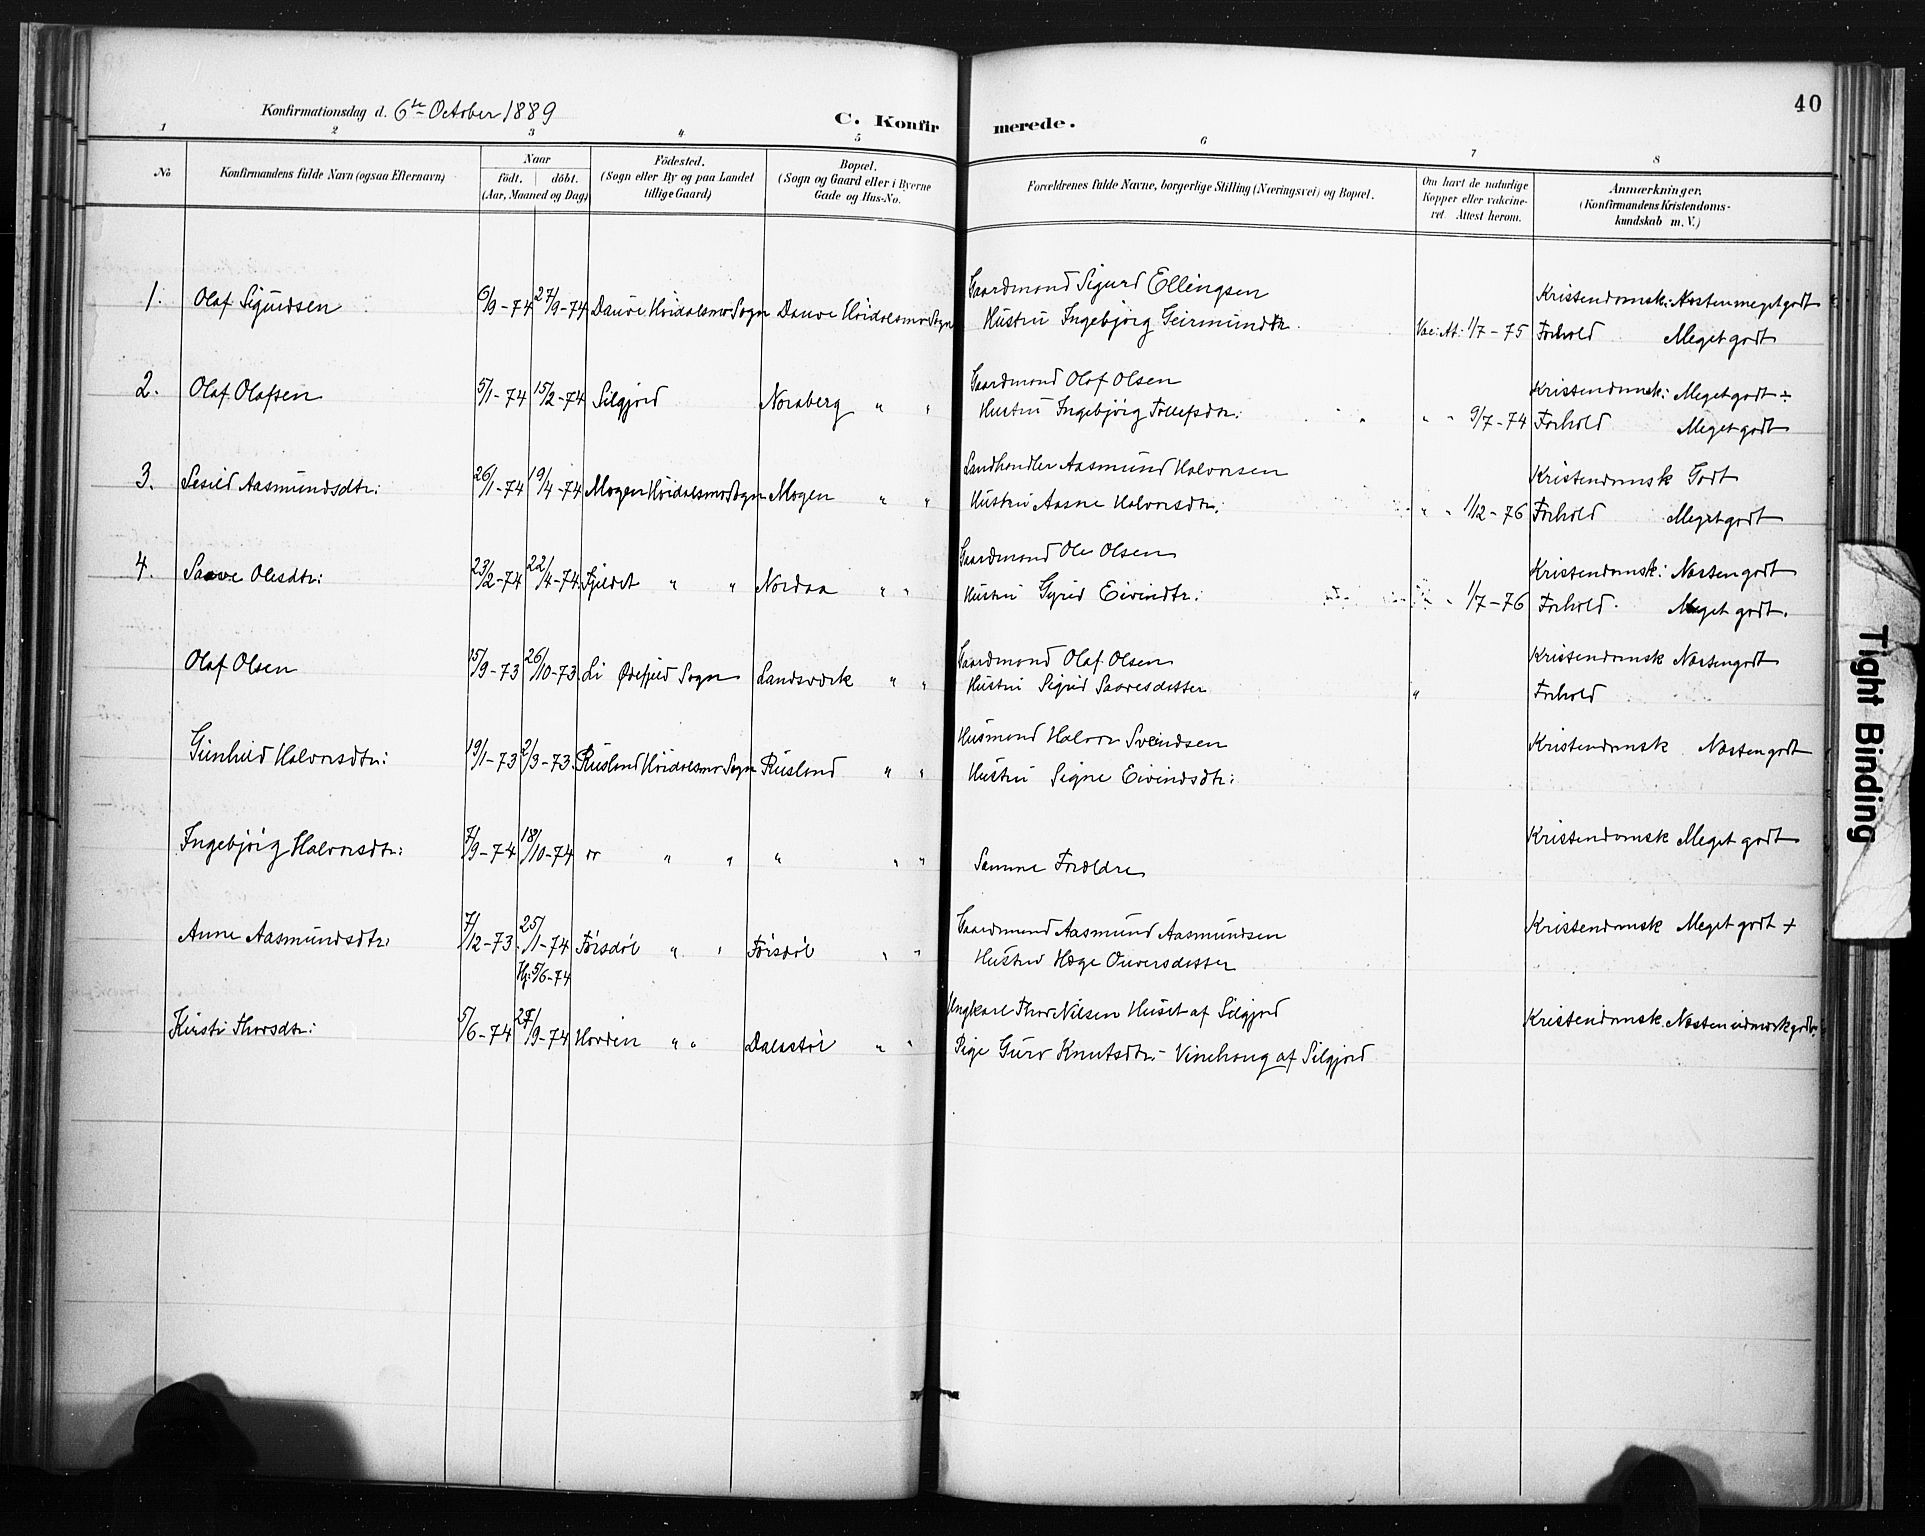 40
Konfirmationsdag d. 6te October 1889
C. Konfirmerede.
1 2 3 4 5 6 7 8
No
Konfirmandens fulde Navn (ogsaa Efternavn)
Naar
födt. döbt.
(Aar, Maaned og Dag)
Födested.
(Sogn eller By og paa Landet
tillige Gaard)
Bopæl.
(Sogn og Gaard eller i Byerne
Gade og Hus-No.
Forældrenes fulde Navne, borgerlige Stilling (Næringsvei) og Bopæl.
Om havt de naturlige
Kopper eller vakcine-
ret. Attest herom.
Anmærkninger.
(Konfirmandens Kristendoms-
kundskab m. V.)
1. Olaf Sigurdsen 6/9-74 27/9-74 Dauve Höidalsmo Sogn Dauve Höidalsmo Sogn
Gaardmand Sigurd Ellingsen
Hustru Ingebjörg Geirmundtr.
Vac: At: 1/7-75
Kristendomsk: Næsten meget godt
Forhold Meget godt
2. Olaf Olafsen 5/1-74 15/2-74 Silgjord Noraberg " "
Gaardmand Olaf Olsen
Hustru Ingebjörg Tollefsdtr:
" " 9/7-74
Kristendomsk: Meget godt ÷
Forhold Meget godt
3. Sesild Aasmundsdtr: 26/1-74 19/4-74 Mogen Höidalsmo Sogn Mogen " "
Landhandler Aasmund Halvorsen
Hustru Aasne Halvorsdtr:
" " 1/12-76
Kristendomsk Godt
Forhold Meget godt
4. Saave Olesdtr: 23/2-74 22/4-74 Fjeldet " " Nordaa " "
Gaardmand Ole Olsen
Hustru Gyrid Eivindtr:
" 1/7-76
Kristendomsk: Næsten godt
Forhold. Meget godt.
Olaf Olsen 15/9-73 26/10-73 Li Ödefjeld Sogn Landsværk " "
Gaardmand Olaf Olsen
Hustru Sigrid Saavesdatter
"
Kristendomsk Næsten godt
Forhold
Gunhild Halvorsdtr: 19/1-73 2/3-73 Rusland Höidalsmo Sogn Rusland " "
Husmand Halvor Svendsen
Hustru Signe Eivindsdtr:
Kristendomsk Næsten godt
Ingebjörg Halvorsdtr: 7/9-74 18/10-74 " " " " " "
Samme Forældre
Kristendomsk Meget godt
Anne Aasmundsdtr: 7/12-73 25/1-74 Försdöl " " Försdöl " "
Hj: 5/6-74
Gaardmand Aasmund Aasmundsen
Hustru Hæge Ouversdatter
Kristendomsk Meget godt +
Kirsti Thorsdtr: 5/6-74 27/9-74 Hovden " " Dalastöl " "
Ungkarl Thor Nilsen Huset af Silgjord
Pige Guro Knutsdtr: Vinehaug af Silgjord
Kristendomsk. Næsten udmærket godt
Tight Binding